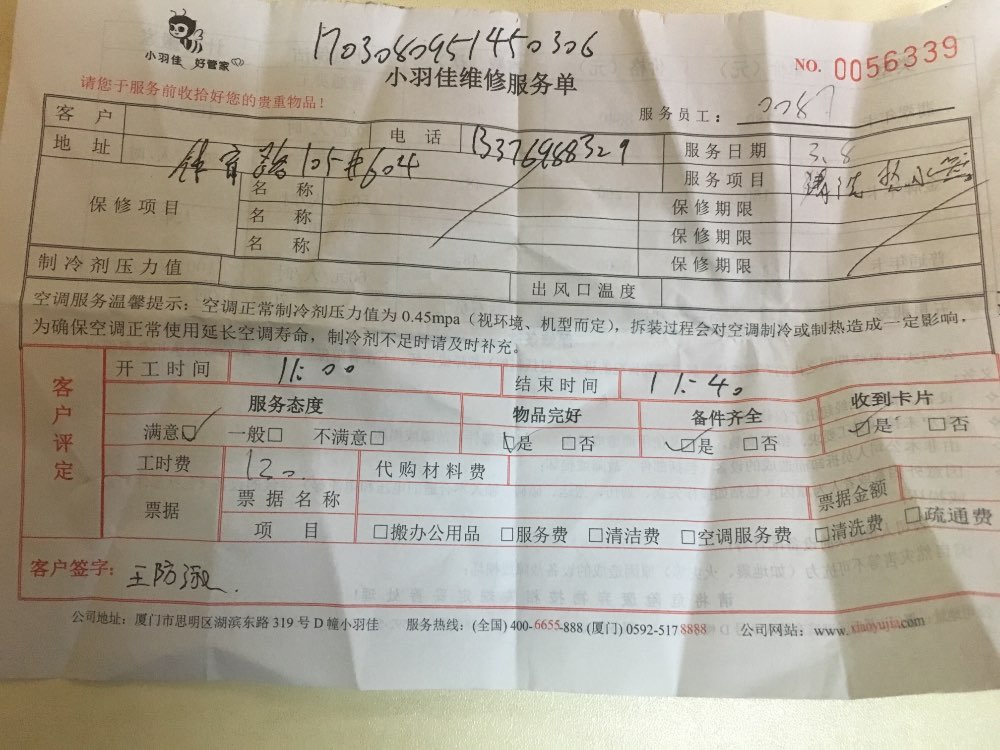 小羽佳 好管家
1703080951450306
小羽佳维修服务单
NO. 0056339
请您于服务前收拾好您的贵重物品！
服务员工： 0087
客户 电话 13376988329 服务日期 3.8
地址 体育路105#604 服务项目 清洗热水器
保修项目 名称 保修期限
名称 保修期限
名称 保修期限
制冷剂压力值 出风口温度
空调服务温馨提示：空调正常制冷剂压力值为 0.45mpa（视环境、机型而定），拆装过程会对空调制冷或制热造成一定影响，
为确保空调正常使用延长空调寿命，制冷剂不足时请及时补充。
客户评定
开工时间 11:00 结束时间 11:40
服务态度 物品完好 备件齐全 收到卡片
满意☑ 一般□ 不满意□ ☑是 □否 ☑是 □否 ☑是 □否
工时费 120 代购材料费
票据 票据名称 票据金额
项目 □搬办公用品 □服务费 □清洁费 □空调服务费 □清洗费 □疏通费
客户签字： 王防
公司地址：厦门市思明区湖滨东路 319 号 D 幢小羽佳 服务热线：(全国) 400-6655-888 (厦门) 0592-5178888 公司网站：www.xiaoyujia.com